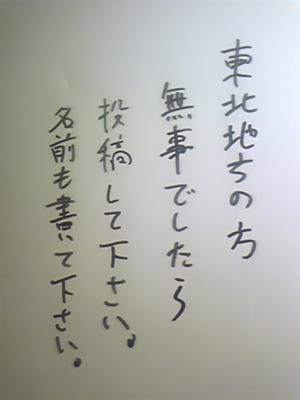 東北地方の方
無事でしたら
投稿して下さい。
名前も書いて下さい。